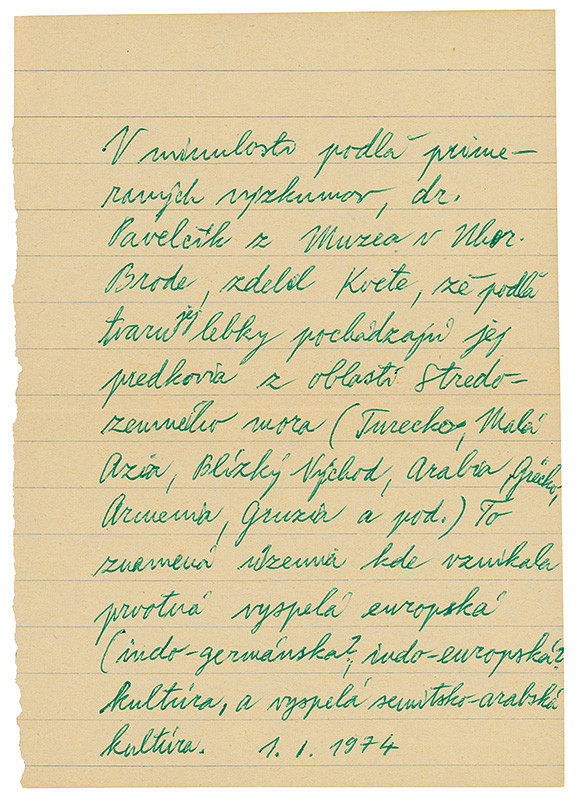 V minulosti podlă prime-
raných výzkumov, dr.
Pavelčík z Muzea v Uher.
Brode, zdelil Kvete, že podlă
tvaru jej lebky pochádzajú jej
predkovia z oblasti Stredo-
zemného mora (Turecko, Malá
Azia, Blízký Východ, Arabia, Grécko,
Armenia, Gruzia a pod.) To
znamená územia kde vznikala
prvotná vyspelá europská
(indo-germánska?, indo-europská?
kultúra, a vyspelá semitsko-arabská
kultúra. 1. 1. 1974